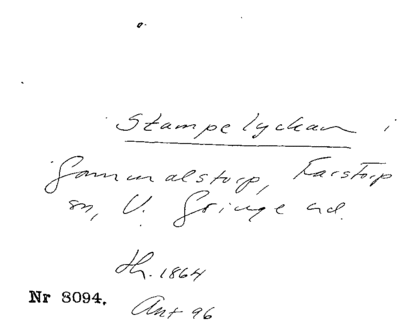 Stampelyckan i
Gammalstorp, Farstorp
sn, V. Göinge hd.
th. 1864
Nr 8094.
Ant 96